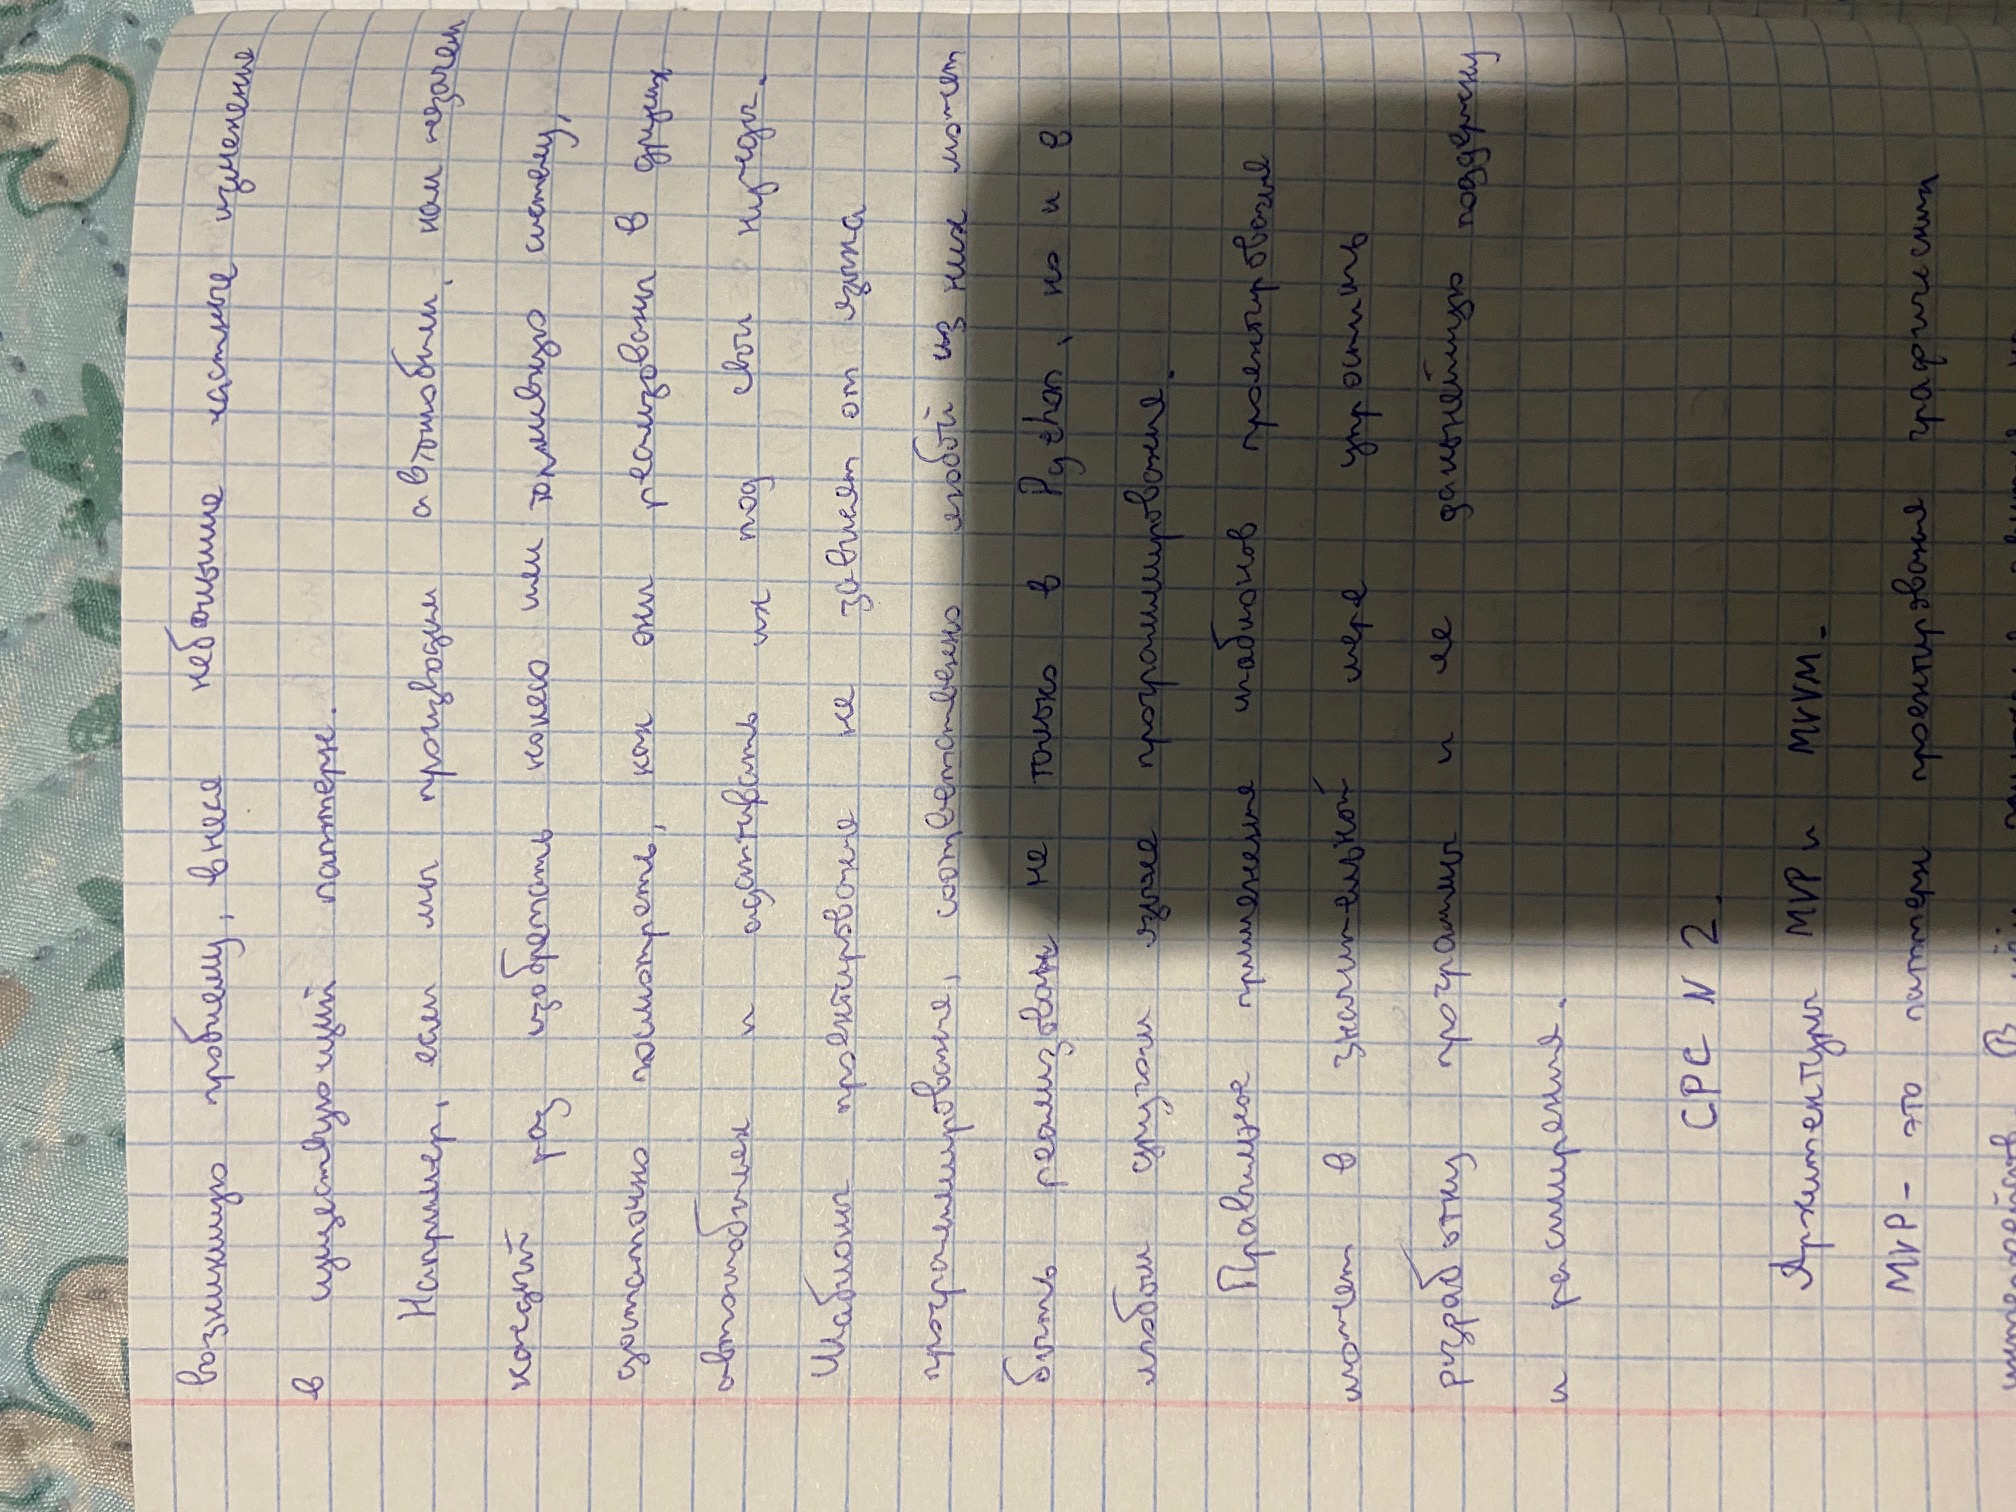 возникшую проблему, внеся небольшие частные изменения
в существующий паттерн.
Например, если мы производим автомобили, нам незачем
каждый раз изобретать колесо или тормивную систему,
достаточно посмотреть, как они реализованы в других
автомобилях и адаптивать их под свои нужды.
Шаблоны проектирования не зависят от языка
программирования, соответственно любой из них может
быть реализован не только в Python, но и в
любом другом языке программирования.
Правильное применение шаблонов проектирования
может в значительной мере упростить
разработку программы и ее дальнейшую поддержку
и расширения.
СРС N 2.
Архитектуры MVP и MVVM.
MVP - это паттерн проектирования графических
интерфейсов. В нём